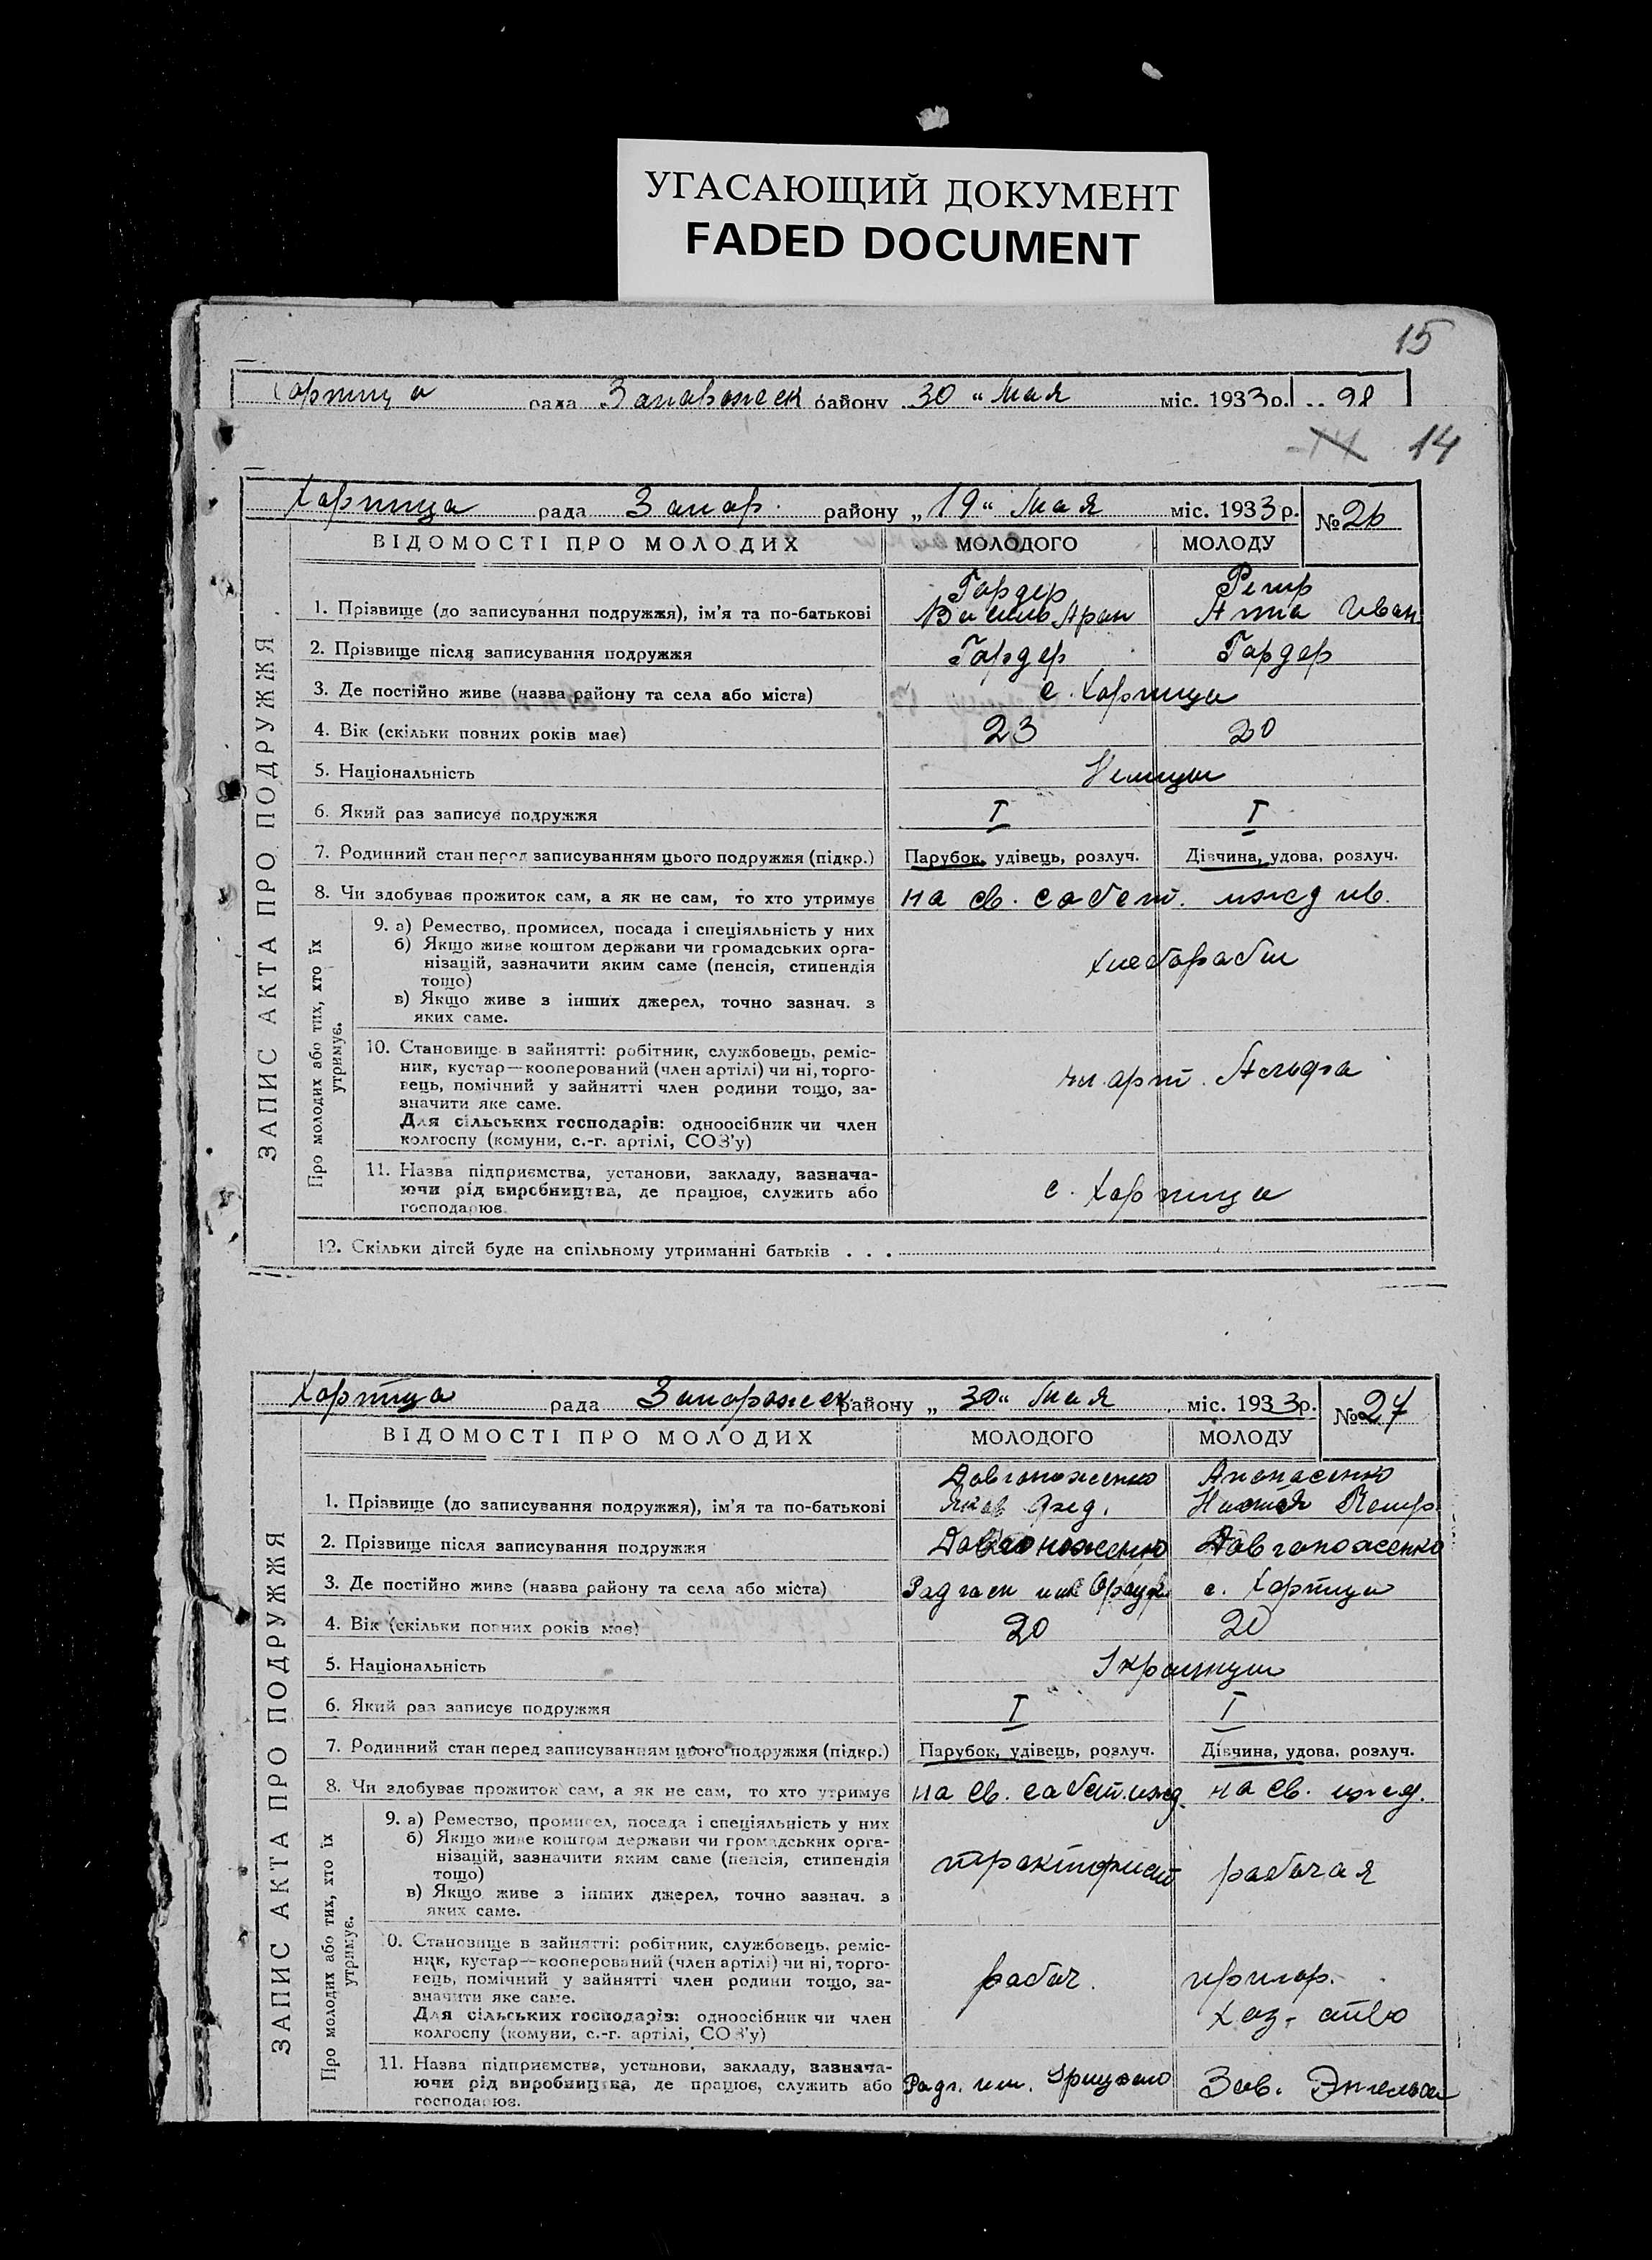 УГАСАЮЩИЙ ДОКУМЕНТ
FADED DOCUMENT
15
Хортица рада Запорожск району 30 " Мая міс. 1933 р. 28
14 14
Хортица рада Запор. району „ 19 " Мая міс. 1933 р. № 26
ВІДОМОСТІ ПРО МОЛОДИХ МОЛОДОГО МОЛОДУ
ЗАПИС АКТА ПРО ПОДРУЖЖЯ
Гардер Ретр
1. Прізвище (до записування подружжя), ім'я та по-батькові Василь Арон Анна Иван
2. Прізвище після записування подружжя Гардер Гардер
3. Де постійно живе (назва району та села або міста) с. Хортица
4. Вік (скільки повних років має) 23 20
5. Національність Немцы
6. Який раз записує подружжя I I
7. Родинний стан перед записуванням цього подружжя (підкр.) Парубок, удівець, розлуч. Дівчина, удова, розлуч.
8. Чи здобуває прожиток сам, а як не сам, то хто утримує на св. собст. иждив.
Про молодих або тих, хто їх утримує.
9. а) Ремество, промисел, посада і спеціяльність у них
б) Якщо живе коштом держави чи громадських орга-
нізацій, зазначити яким саме (пенсія, стипендія
тощо)
в) Якщо живе з інших джерел, точно зазнач. з
яких саме.
хлеборобы
10. Становище в зайнятті: робітник, службовець, реміс-
ник, кустар—кооперований (член артілі) чи ні, торго-
вець, помічний у зайнятті член родини тощо, за-
значити яке саме.
Для сільських господарів: одноосібник чи член
колгоспу (комуни, с.-г. артілі, СОЗ'у)
чл. арт.
11. Назва підприємства, установи, закладу, зазнача-
ючи рід виробництва, де працює, служить або
господарює
с. Хортица
12. Скільки дітей буде на спільному утриманні батьків . . .
Хортица рада Запорожск району „ 30 " Мая міс. 1933 р. № 27
ВІДОМОСТІ ПРО МОЛОДИХ МОЛОДОГО МОЛОДУ
ЗАПИС АКТА ПРО ПОДРУЖЖЯ
Довгоноженко Апанасенко
1. Прізвище (до записування подружжя), ім'я та по-батькові Яков Фед. Настя Петр.
2. Прізвище після записування подружжя Довгоноженко Довгоноженко
3. Де постійно живе (назва району та села або міста) Радгосп им с. Хортица
4. Вік (скільки повних років має) 20 20
5. Національність Украинцы
6. Який раз записує подружжя I I
7. Родинний стан перед записуванням цього подружжя (підкр.) Парубок, удівець, розлуч. Дівчина, удова, розлуч.
8. Чи здобуває прожиток сам, а як не сам, то хто утримує на св. собст. ижд. на св. ижд.
Про молодих або тих, хто їх утримує.
9. а) Ремество, промисел, посада і спеціяльність у них
б) Якщо живе коштом держави чи громадських орга-
нізацій, зазначити яким саме (пенсія, стипендія
тощо)
в) Якщо живе з інших джерел, точно зазнач. з
яких саме.
тракторист рабочая
10. Становище в зайнятті: робітник, службовець, реміс-
ник, кустар—кооперований (член артілі) чи ні, торго-
вець, помічний у зайнятті член родини тощо, за-
значити яке саме.
Для сільських господарів: одноосібник чи член
колгоспу (комуни, с.-г. артілі, СОЗ'у)
рабоч. пригор.
хоз-ство
11. Назва підприємства, установи, закладу, зазнача-
ючи рід виробництва, де працює, служить або
господарює.
Радг. им. Грицько Зав. Энгельса